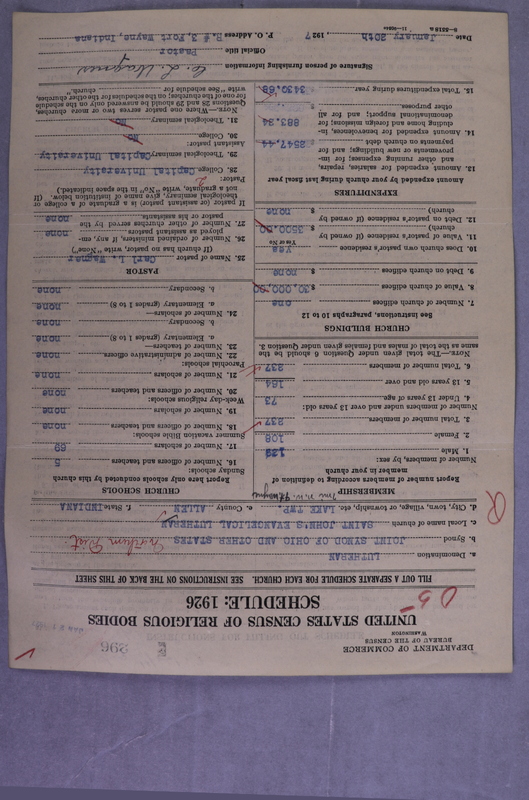 DEPARTMENT OF COMMERCE
BUREAU OF THE CENSUS
WASHINGTON
296
UNITED STATES CENSUS OF RELIGIOUS BODIES
SCHEDULE: 1926
FILL OUT A SEPARATE SCHEDULE FOR EACH CHURCH. SEE INSTRUCTIONS ON THE BACK OF THIS SHEET
a. Denomination LUTHERAN
b. Synod JOINT SYNOD OF OHIO AND OTHER STATES
c. Local name of church SAINT JOHN'S EVANGELICAL LUTHERAN
d. City, town, village, or township, etc. LAKE TWP. e. County ALLEN f. State INDIANA
MEMBERSHIP
Report number of members according to definition of member in your church
Number of members, by sex:
1. Male 129
2. Female 108
3. Total number of members 237
Number of members under and over 13 years old:
4. Under 13 years of age 73
5. 13 years old and over 164
6. Total number of members 237
NOTE.—The total given under Question 6 should be the same as the total of males and females given under Question 3.
CHURCH BUILDINGS
See instructions, paragraphs 10 to 12
7. Number of church edifices one
8. Value of church edifices $ 30,000.00
9. Debt on church edifices $ none
10. Does church own pastor's residence yes
Yes or No
11. Value of pastor's residence (if owned by church) $ 3500.00
12. Debt on pastor's residence (if owned by church) $ none
EXPENDITURES
Amount expended by your church during last fiscal year
13. Amount expended for salaries, repairs, and other running expenses; for improvements or new buildings; and for payments on church debt 2547.44
14. Amount expended for benevolences, including home and foreign missions; for denominational support; and for all other purposes 883.24
15. Total expenditures during year 3430.68
CHURCH SCHOOLS
Report here only schools conducted by this church
Sunday Schools:
16. Number of officers and teachers 5
17. Number of scholars 69
Summer vacation Bible schools:
18. Number of officers and teachers none
19. Number of scholars none
Week-day religious schools:
20. Number of officers and teachers none
21. Number of scholars none
Parochial schools:
22. Number of administrative officers none
23. Number of teachers—
a. Elementary (grades 1 to 8) none
b. Secondary none
24. Number of scholars—
a. Elementary (grades 1 to 8) none
b. Secondary none
PASTOR
25. Name of pastor Carl L. Wagner
(If church has no pastor, write "None")
26. Number of ordained ministers, if any, employed as assistant pastors none
27. Number of other churches served by the pastor or his assistants none
If pastor (or assistant pastor) is a graduate of a college or theological seminary, give name of institution below. (If not a graduate, write "No" in the space indicated.)
Pastor:
28. College Capital University
29. Theological seminary Capital University
Assistant pastor:
30. College No
31. Theological seminary No
NOTE.—Where one pastor serves two or more churches, Questions 25 and 29 should be answered only on the schedule for one of the churches; on the schedules for the other churches, write "See schedule for church."
Signature of person furnishing information C. L. Wagner
Official title Pastor
P. O. Address R.# 3, Fort Wayne, Indiana
Date January 20th 1927